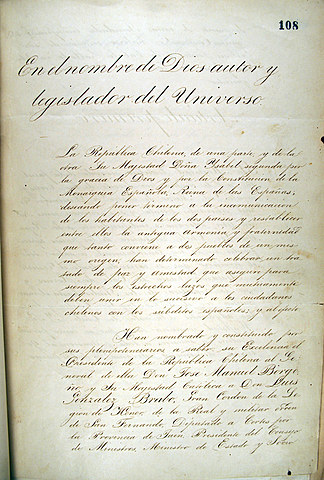 108
En el nombre de Dios autor y
legislador del Universo.
La Republica Chilena, de una parte, y de la
otra Su Majestad Doña Ysabel segunda por
la gracia de Dios y por la Constitucion de la
Monarquia Española, Reina de las Españas,
deseando poner termino a la incomunicacion
de los habitantes de los dos paises y restablecer
entre ellos la antigua armonia y fraternidad
que tanto conviene a dos pueblos de un mis-
mo origen, han determinado celebrar un tra-
tado de paz y amistad que asegure para
siempre los estrechos lazos que mutuamente
deben unir en lo sucesivo a los ciudadanos
chilenos con los subditos españoles; y al efecto
Han nombrado y constituido por
sus plenipotenciarios a saber, su Excelencia el
Presidente de la Republica Chilena al Ge-
neral de ella Don Jose Manuel Borgo-
ño y Su Majestad Catolica a Don Luis
Gonzalez Brabo, Gran Cordon de la Le-
gion de Honor, de la Real y militar orden
de San Fernando, Diputado a Cortes por
la Provincia de Jaen, Presidente del Consejo
de Ministros, Ministro de Estado y